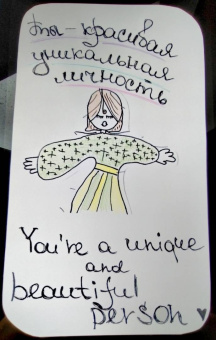 ты - красивая
уникальная
личность
You're a unique
and
beautiful
person